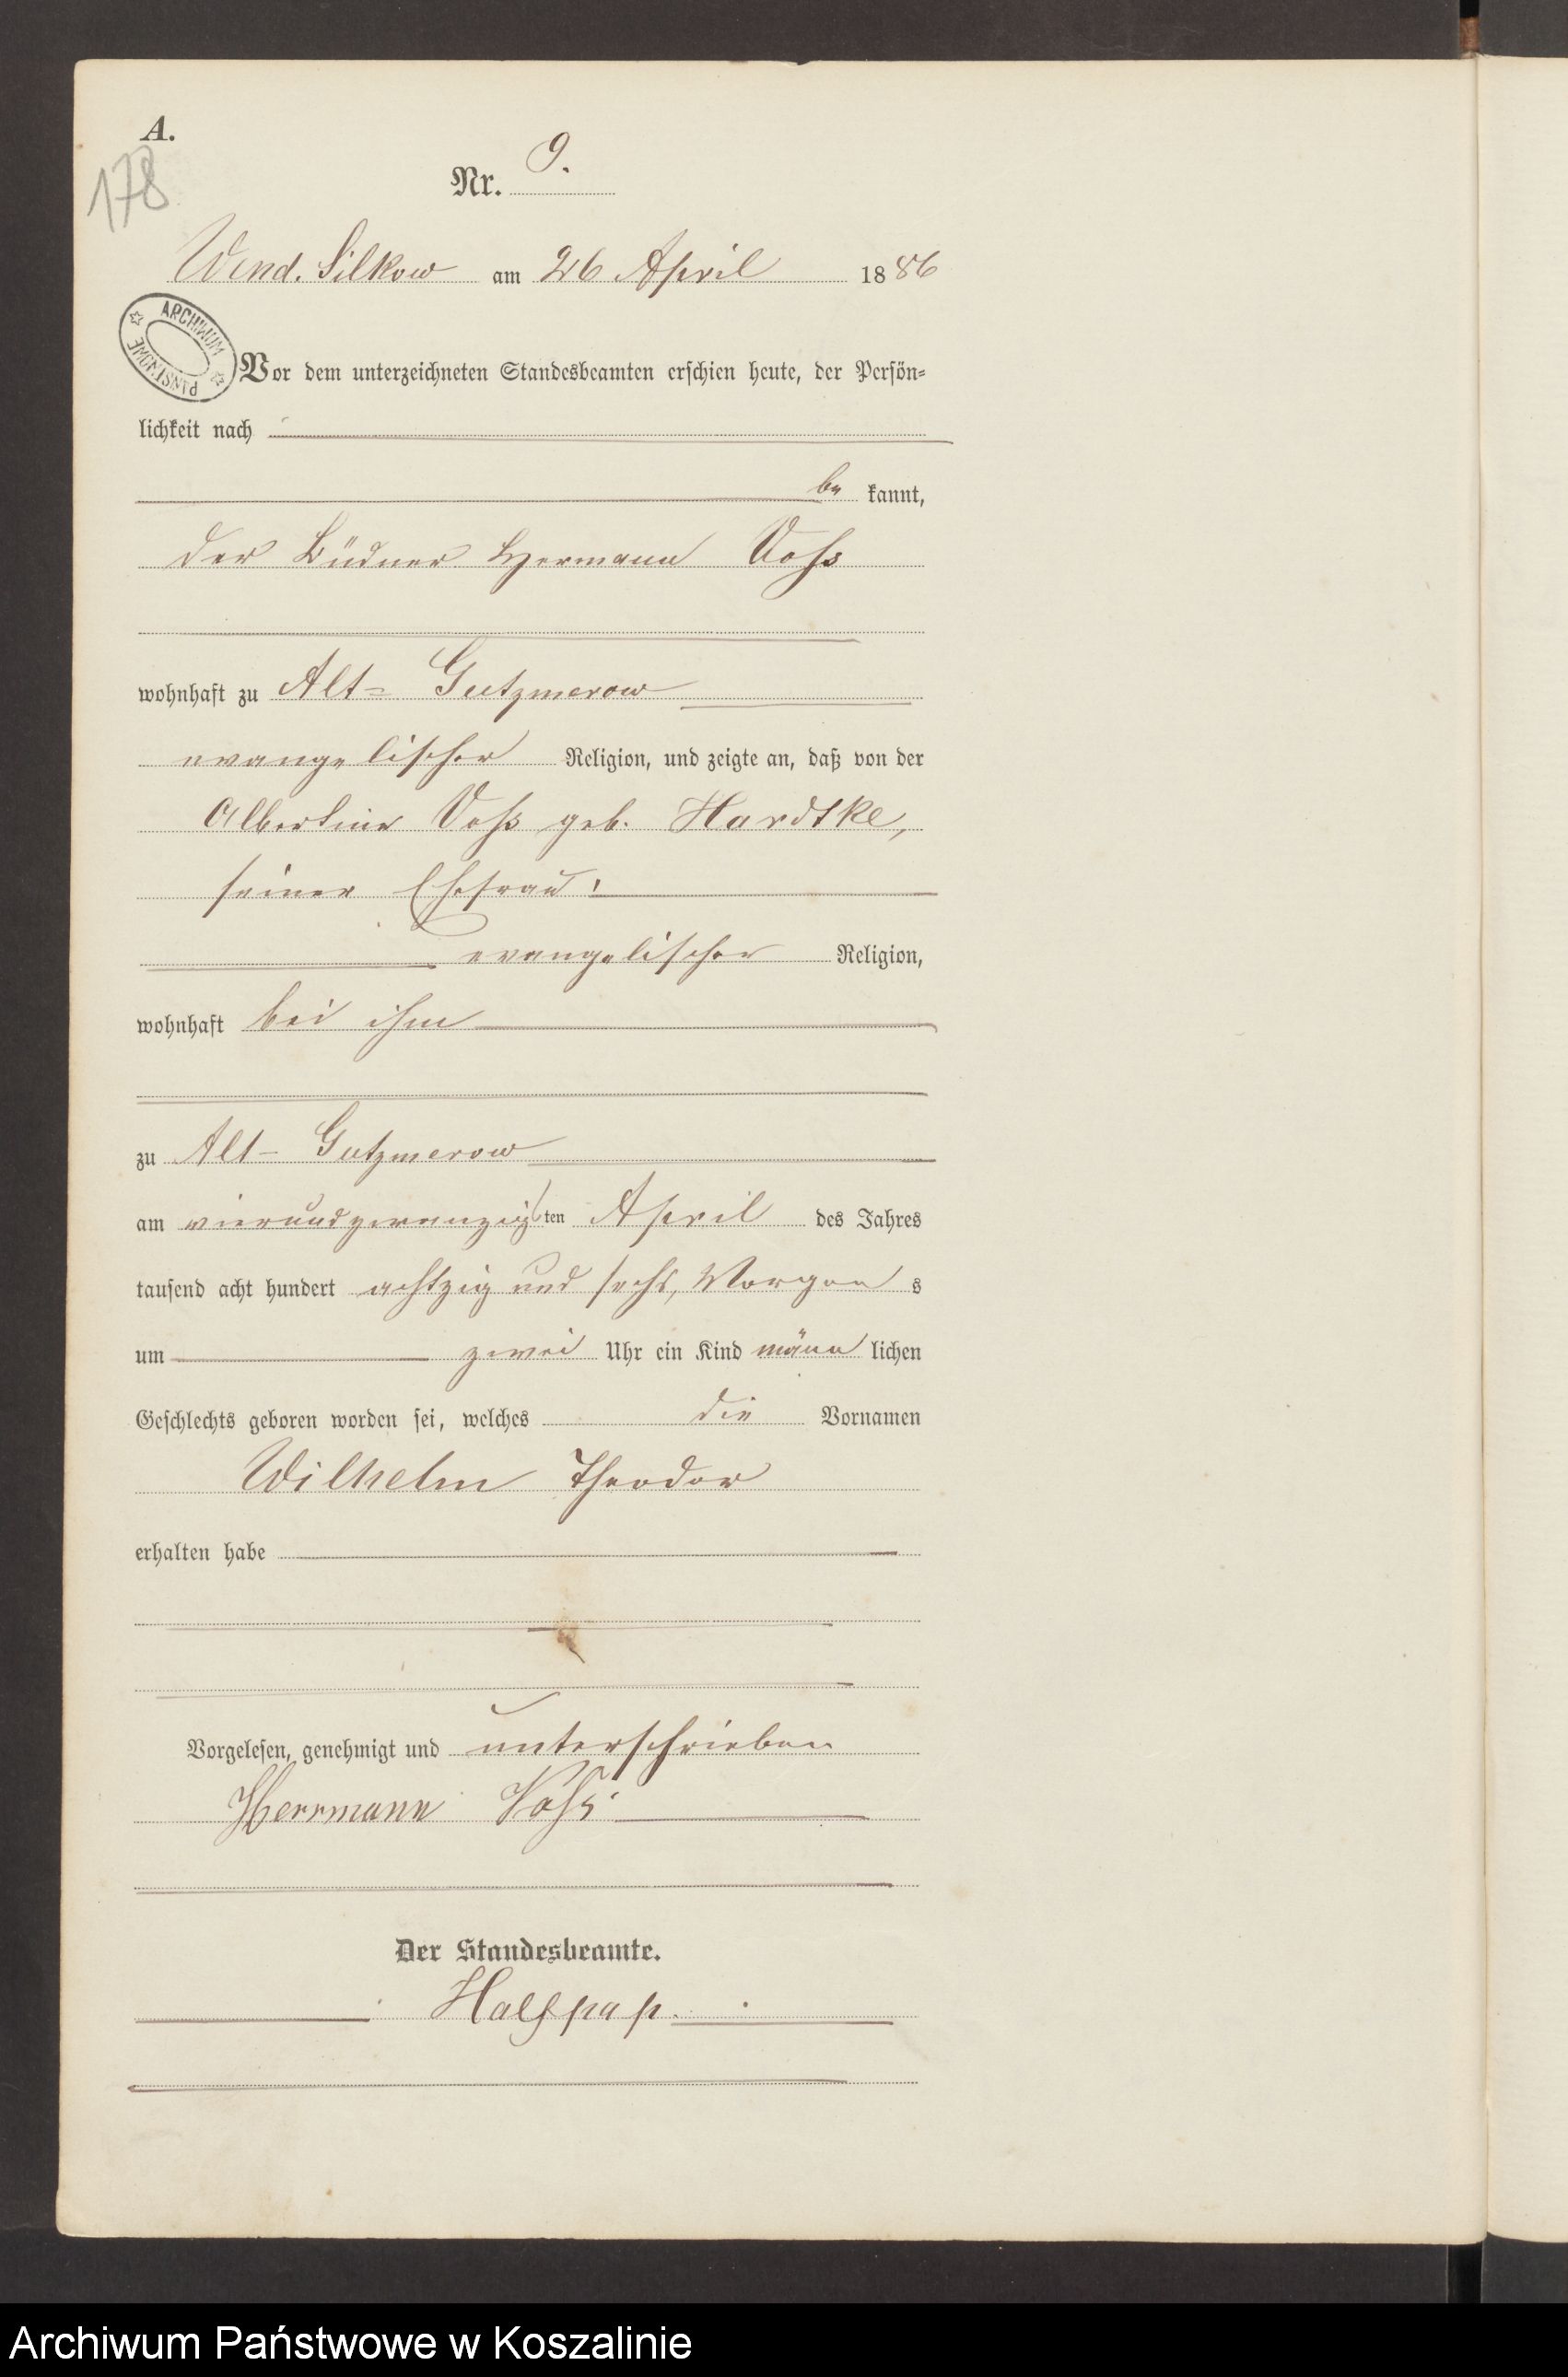 A.
178
Nr. 9.
Wend. Silkow am 26 April 1886
ARCHIWUM PAŃSTWOWE
Vor dem unterzeichneten Standesbeamten erschien heute, der Persön=
lichkeit nach
be kannt,
der Büdner Hermann Voß
wohnhaft zu Alt= Gutzmerow
evangelischer Religion, und zeigte an, daß von der
Albertine Voß geb. Hardtke,
seiner Ehefrau,
evangelischer Religion,
wohnhaft bei ihm
zu Alt- Gutzmerow
am vierundzwanzigten April des Jahres
tausend acht hundert achtzig und sechs, Morgens
um zwei Uhr ein Kind männlichen
Geschlechts geboren worden sei, welches die Vornamen
Wilhelm Theodor
erhalten habe
Vorgelesen, genehmigt und unterschrieben
Herrmann Voß
Der Standesbeamte.
Halfpap.
Archiwum Państwowe w Koszalinie